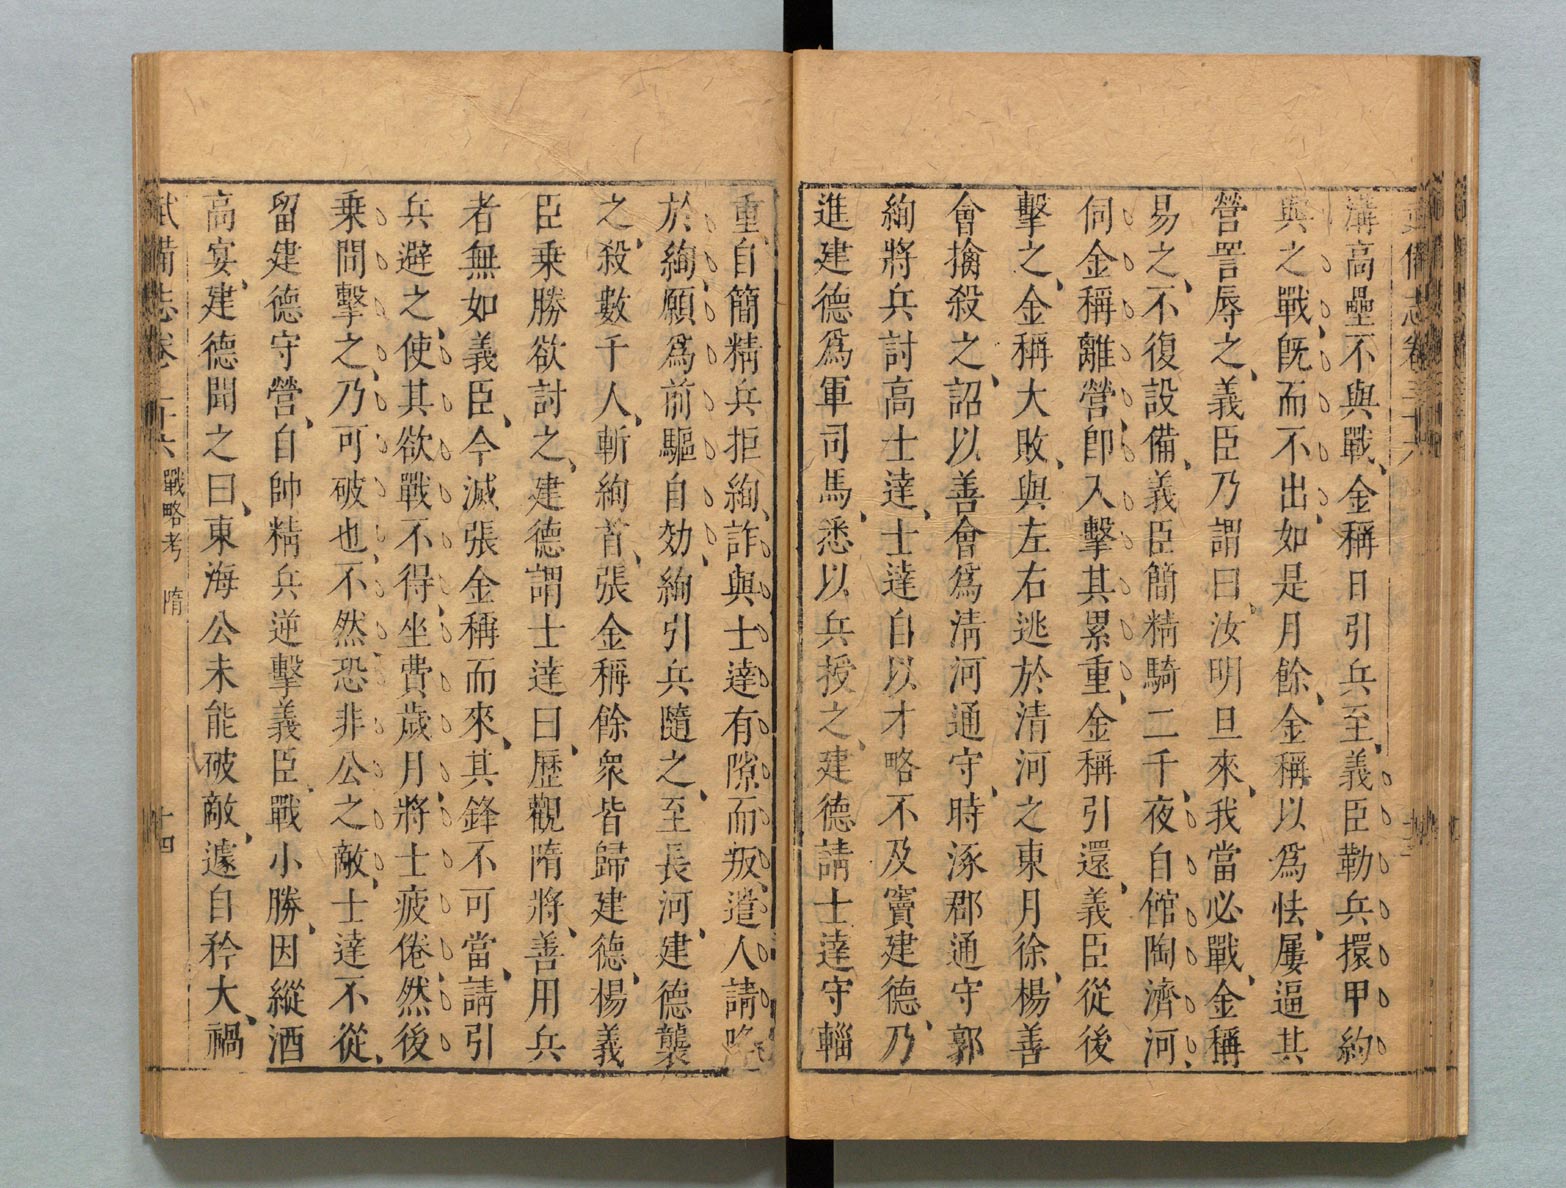 武備志卷三十六
溝高壘不與戰、金稱日引兵至、義臣勒兵擐甲約
與之戰、旣而不出、如是月餘、金稱以爲怯、屢逼其
營詈辱之、義臣乃謂曰、汝明旦來、我當必戰、金稱
易之、不復設備、義臣簡精騎二千、夜自館陶濟河、
伺金稱離營、卽入擊其累重、金稱引還、義臣從後
擊之、金稱大敗、與左右逃於清河之東月徐、楊善
會擒殺之、詔以善會爲清河通守、時涿郡通守郭
絢將兵討高士達、士達自以才略不及竇建德、乃
進建德爲軍司馬、悉以兵授之、建德請士達守輜
重、自簡精兵拒絢、詐與士達有隙而叛、遣人請降
於絢、願爲前驅自効、絢引兵隨之、至長河、建德襲
之、殺數千人、斬絢首、張金稱餘衆皆歸建德、楊義
臣乘勝欲討之、建德謂士達曰、歷觀隋將、善用兵
者無如義臣、今滅張金稱而來、其鋒不可當、請引
兵避之、使其欲戰不得坐費歲月、將士疲倦、然後
乘間擊之、乃可破也、不然恐非公之敵、士達不從、
留建德守營、自帥精兵逆擊義臣、戰小勝、因縱酒
高宴、建德聞之曰、東海公未能破敵、遽自矜大、禍
武備志卷三十六 戰略考 隋 十四